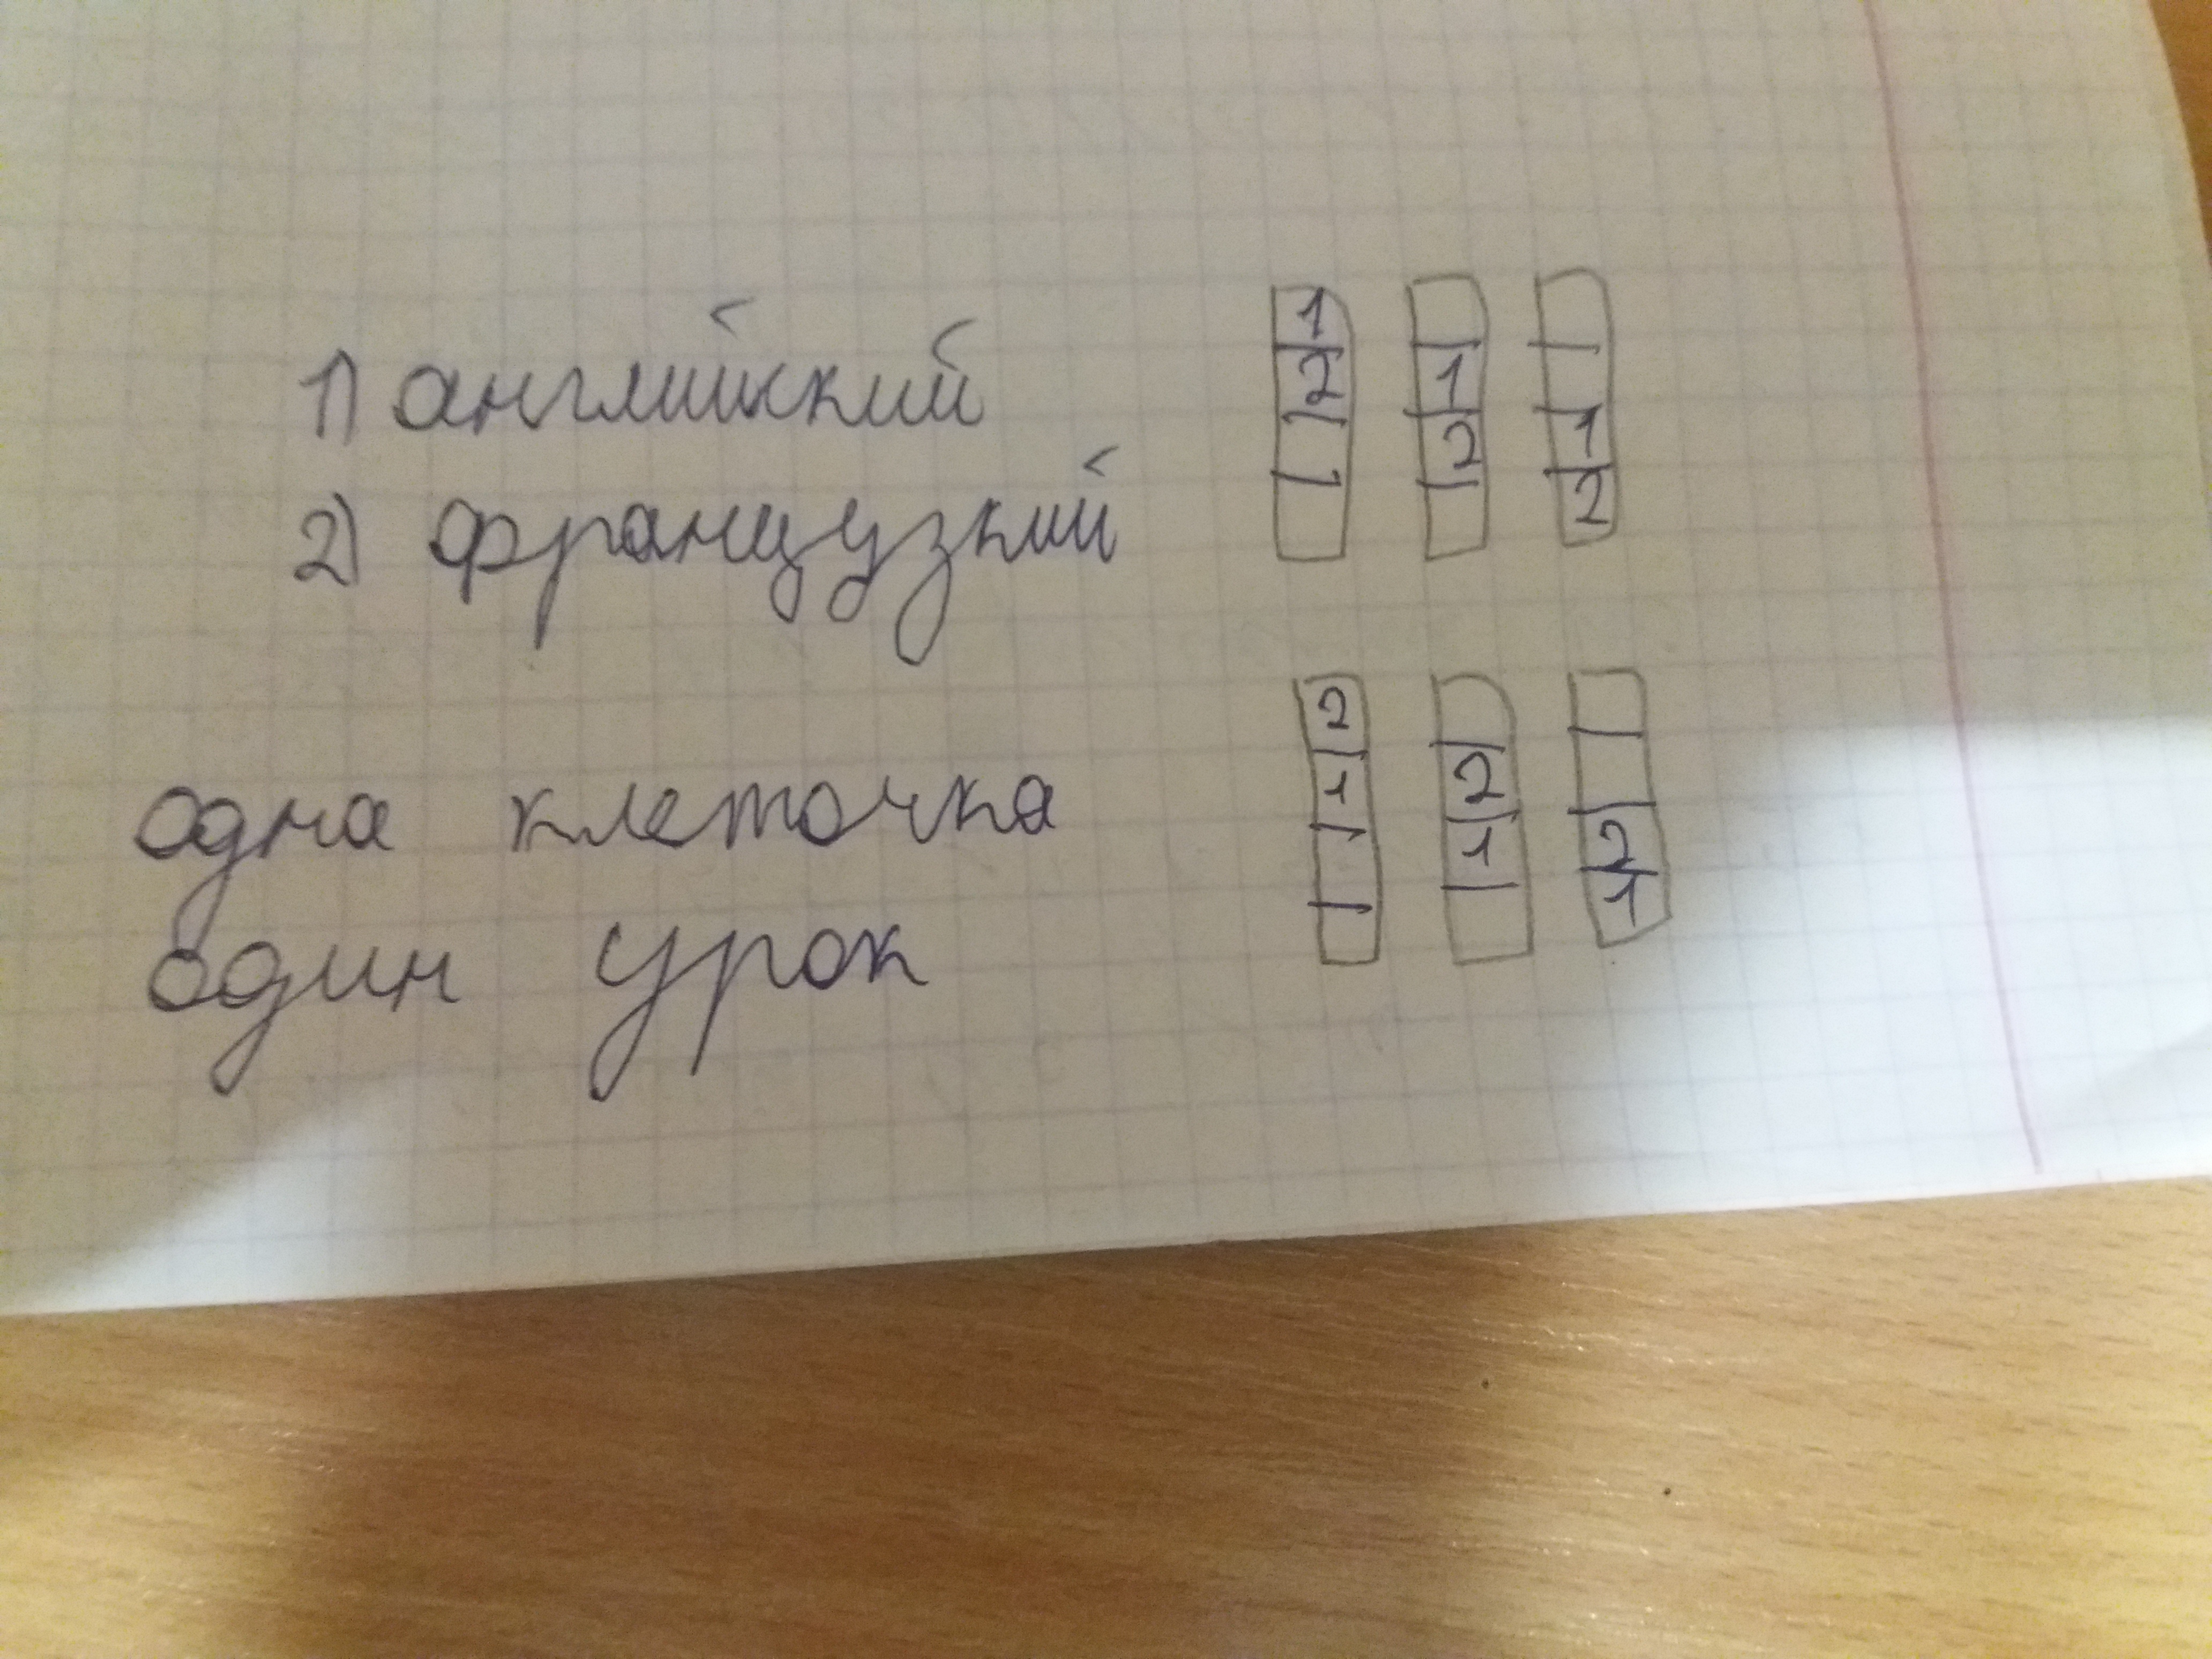 1) английский
2) французкий
1
2
1
2
1
2
одна клеточка
один урок
2
1
2
1
2
1